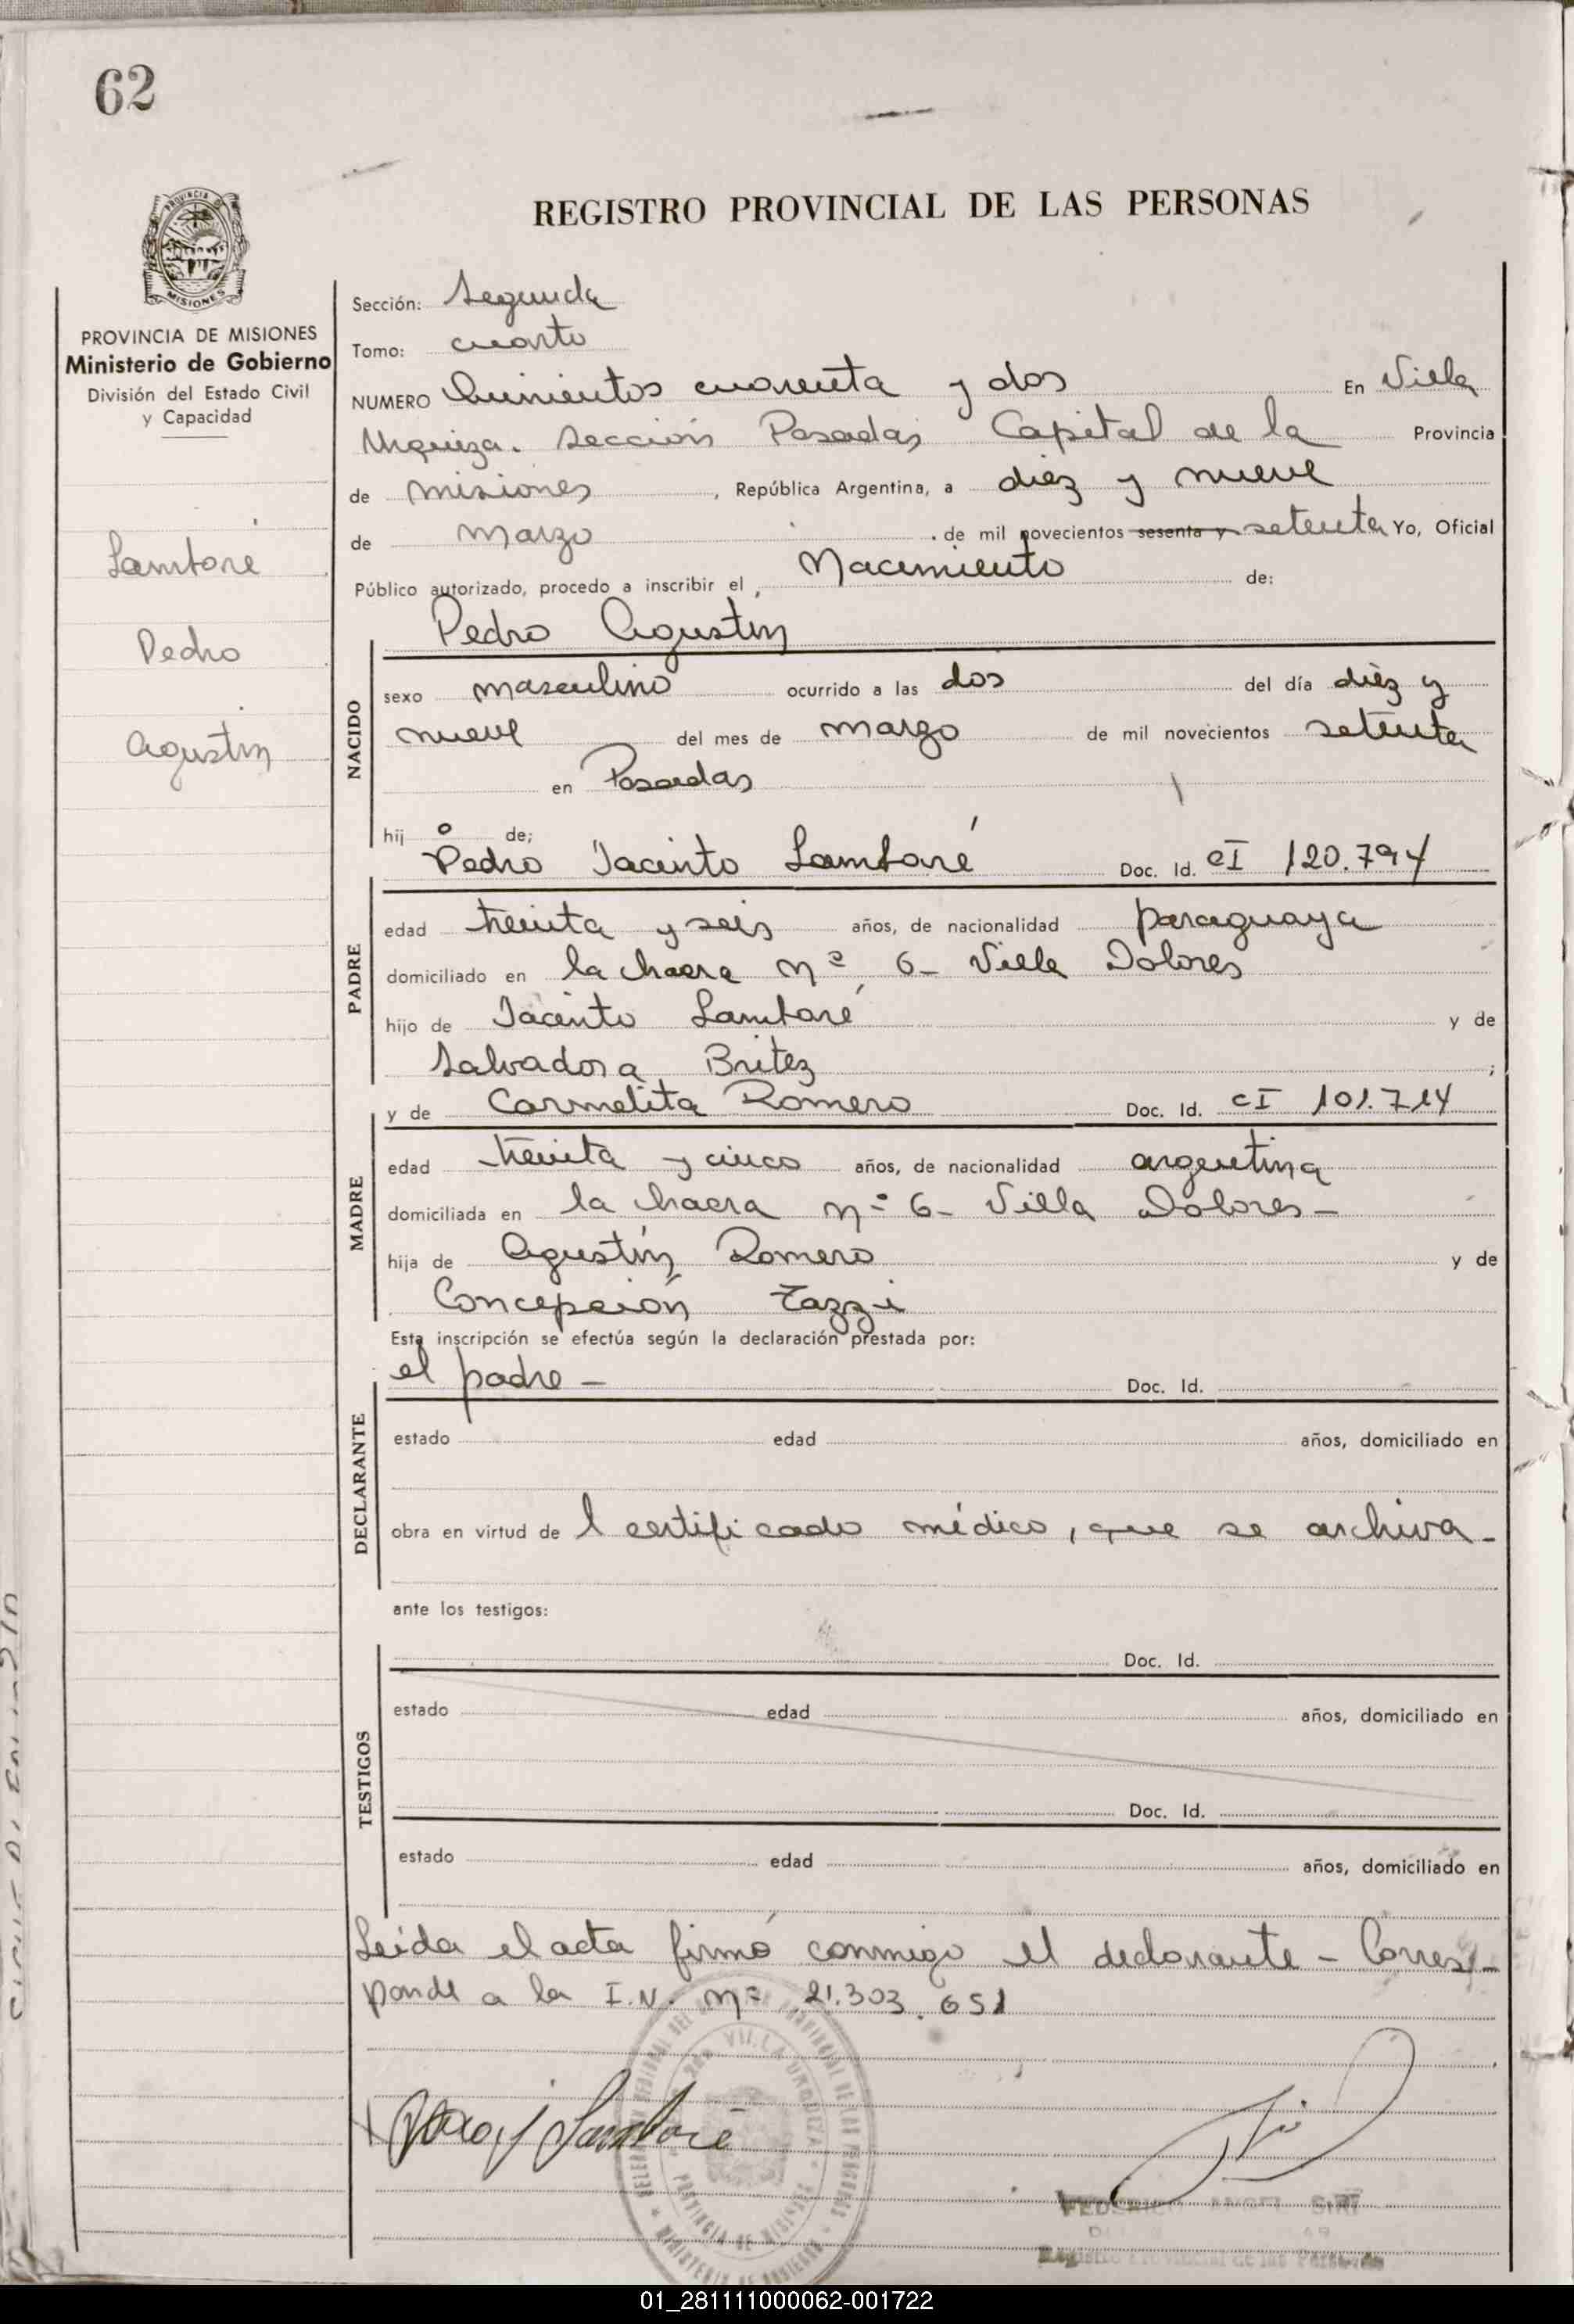 62
REGISTRO PROVINCIAL DE LAS PERSONAS
PROVINCIA DE MISIONES
Ministerio de Gobierno
División del Estado Civil
y Capacidad
Lambaré
Pedro
Agustin
Sección: Segunda
Tomo: cuarto
NUMERO Quinientos cuarenta y dos En Villa
Urquiza. Sección Posadas Capital de la Provincia
de misiones, República Argentina, a diez y nueve
de marzo de mil novecientos sesenta y setenta Yo, Oficial
Público autorizado, procedo a inscribir el Nacimiento de:
Pedro Agustin
NACIDO
sexo masculino ocurrido a las dos del día diez y
nueve del mes de marzo de mil novecientos setenta
en Posadas
hij o de;
Pedro Jacinto Lambaré Doc. Id. CI 120.794
PADRE
edad treinta y seis años, de nacionalidad paraguaya
domiciliado en la chacra nº 6- Villa Dolores
hijo de Jacinto Lambaré y de
Salvadora Britez;
y de Carmelita Romero Doc. Id. CI 101.714
MADRE
edad treinta y cinco años, de nacionalidad argentina
domiciliada en la chacra nº 6- Villa Dolores-
hija de Agustín Romero y de
Concepción Tazzi
Esta inscripción se efectúa según la declaración prestada por:
el padre - Doc. Id.
DECLARANTE
estado edad años, domiciliado en
obra en virtud de l certificado médico, que se archiva-
ante los testigos:
Doc. Id.
TESTIGOS
estado edad años, domiciliado en
Doc. Id.
estado edad años, domiciliado en
Leida el acta firmó conmigo el declarante - Corres-
ponde a la I.N. nº 21.303.651
Lambaré
FEDERICO ANGEL
Registro Provincial de las Personas
01_281111000062-001722